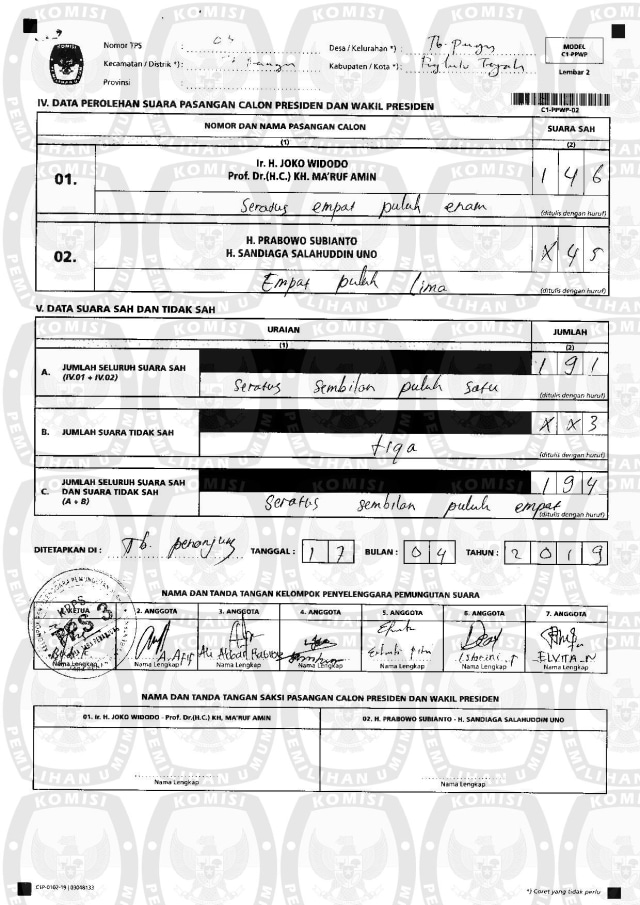 Nomor TPS : 03
Desa / Kelurahan *) :
MODEL
C1-PPWP
Kecamatan / Distrik *) :
Kabupaten / Kota *) : Tengah
Provinsi :
Lembar 2
IV. DATA PEROLEHAN SUARA PASANGAN CALON PRESIDEN DAN WAKIL PRESIDEN
C1-PPWP-02
NOMOR DAN NAMA PASANGAN CALON SUARA SAH
(1) (2)
01. Ir. H. JOKO WIDODO
Prof. Dr.(H.C.) KH. MA'RUF AMIN
1 4 6
Seratus empat puluh enam
(ditulis dengan huruf)
02. H. PRABOWO SUBIANTO
H. SANDIAGA SALAHUDDIN UNO
X 4 5
Empat puluh lima
(ditulis dengan huruf)
V. DATA SUARA SAH DAN TIDAK SAH
URAIAN JUMLAH
(1) (2)
A. JUMLAH SELURUH SUARA SAH
(IV.01 + IV.02)
1 9 1
Seratus sembilan puluh satu
(ditulis dengan huruf)
B. JUMLAH SUARA TIDAK SAH
X X 3
tiga
(ditulis dengan huruf)
C. JUMLAH SELURUH SUARA SAH
DAN SUARA TIDAK SAH
(A + B)
1 9 4
Seratus sembilan puluh empat
(ditulis dengan huruf)
DITETAPKAN DI : Tb. penanjung TANGGAL : 1 7 BULAN : 0 4 TAHUN : 2 0 1 9
NAMA DAN TANDA TANGAN KELOMPOK PENYELENGGARA PEMUNGUTAN SUARA
KETUA 2. ANGGOTA 3. ANGGOTA 4. ANGGOTA 5. ANGGOTA 6. ANGGOTA 7. ANGGOTA
KPPS
TPS 3
A. Afif Ali Akbar ELVITA. N
Nama Lengkap Nama Lengkap Nama Lengkap Nama Lengkap Nama Lengkap Nama Lengkap Nama Lengkap
NAMA DAN TANDA TANGAN SAKSI PASANGAN CALON PRESIDEN DAN WAKIL PRESIDEN
01. Ir. H. JOKO WIDODO - Prof. Dr.(H.C.) KH. MA'RUF AMIN
02. H. PRABOWO SUBIANTO - H. SANDIAGA SALAHUDDIN UNO
Nama Lengkap Nama Lengkap
*) Coret yang tidak perlu